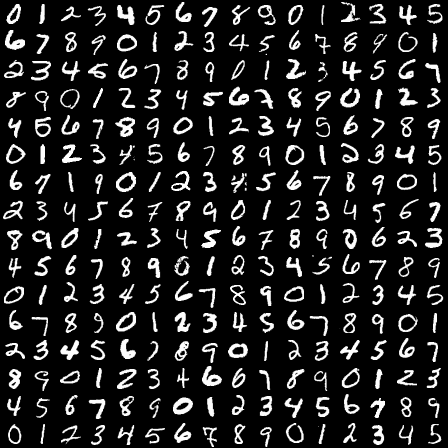 0 1 2 3 4 5 6 7 8 9 0 1 2 3 4 5
6 7 8 9 0 1 2 3 4 5 6 7 8 9 0 1
2 3 4 5 6 7 8 9 0 1 2 3 4 5 6 7
8 9 0 1 2 3 4 5 6 7 8 9 0 1 2 3
4 5 6 7 8 9 0 1 2 3 4 5 6 7 8 9
0 1 2 3 4 5 6 7 8 9 0 1 2 3 4 5
6 7 1 9 0 1 2 3 4 5 6 7 8 9 0 1
2 3 4 5 6 7 8 9 0 1 2 3 4 5 6 7
8 9 0 1 2 3 4 5 6 7 8 9 0 6 2 3
4 5 6 7 8 9 0 1 2 3 4 5 6 7 8 9
0 1 2 3 4 5 6 7 8 9 0 1 2 3 4 5
6 7 8 9 0 1 2 3 4 5 6 7 8 9 0 1
2 3 4 5 6 7 8 9 0 1 2 3 4 5 6 7
8 9 0 1 2 3 4 6 6 7 8 9 0 1 2 3
4 5 6 7 8 9 0 1 2 3 4 5 6 7 8 9
0 1 2 3 4 5 6 7 8 9 0 1 2 3 4 5